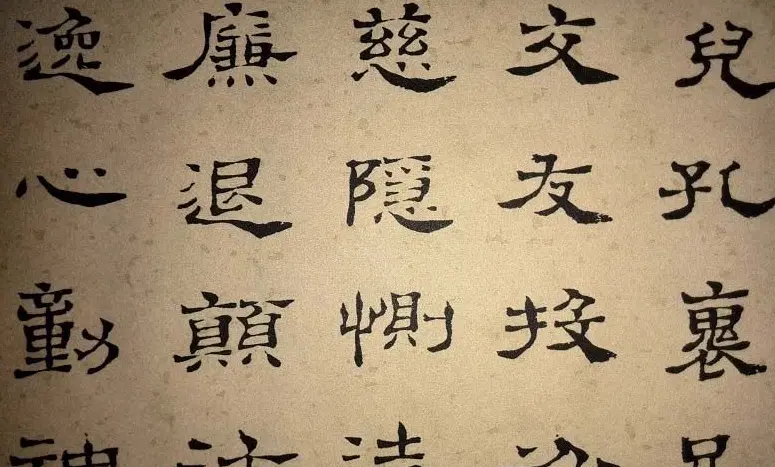 兒孔褱
交友投
慈隱惻
廉退顛
逸心動神